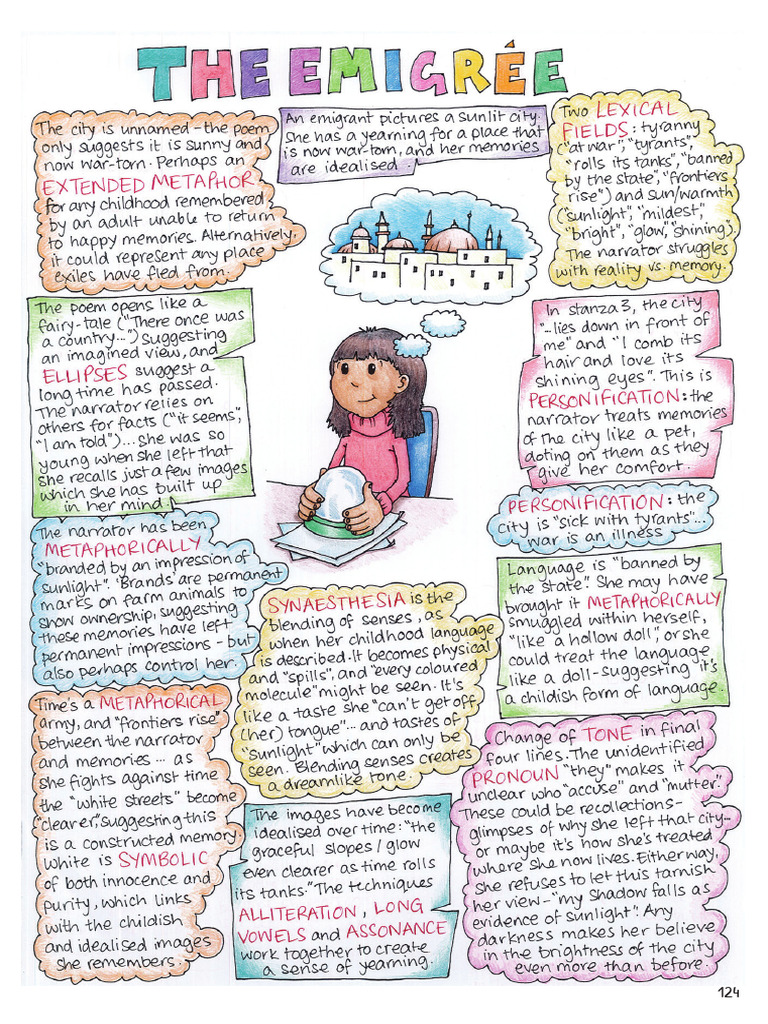 THE EMIGRÉE
The city is unnamed - the poem
only suggests it is sunny and
now war-torn. Perhaps an
EXTENDED METAPHOR
for any childhood remembered
by an adult unable to return
to happy memories. Alternatively,
it could represent any place
exiles have fled from.
An emigrant pictures a sunlit city.
She has a yearning for a place that
is now war-torn, and her memories
are idealised.
Two LEXICAL
FIELDS: tyranny
("at war", "tyrants",
"rolls its tanks", "banned
by the state", "frontiers
rise") and sun/warmth
("sunlight", "mildest",
"bright", "glow", "shining").
The narrator struggles
with reality vs. memory.
The poem opens like a
fairy-tale ("There once was
a country...") suggesting
an imagined view, and
ELLIPSES suggest a
long time has passed.
The narrator relies on
others for facts ("it seems",
"I am told")... She was so
young when she left that
she recalls just a few images
which she has built up
in her mind.
In stanza 3, the city
"...lies down in front of
me" and "I comb its
hair and love its
shining eyes". This is
PERSONIFICATION: the
narrator treats memories
of the city like a pet,
doting on them as they
give her comfort.
PERSONIFICATION: the
city is "sick with tyrants"...
war is an illness
The narrator has been
METAPHORICALLY
"branded by an impression of
sunlight". 'Brands' are permanent
marks on farm animals to
show ownership, suggesting
these memories have left
permanent impressions - but
also perhaps control her.
SYNAESTHESIA is the
blending of senses, as
when her childhood language
is described. It becomes physical
and "spills", and "every coloured
molecule" might be seen. It's
like a taste she "can't get off
(her) tongue"... and tastes of
"sunlight" which can only be
seen. Blending senses creates
a dreamlike tone.
Language is "banned by
the state". She may have
brought it METAPHORICALLY
smuggled within herself,
"like a hollow doll", or she
could treat the language
like a doll - suggesting it's
a childish form of language.
Time's a METAPHORICAL
army, and "frontiers rise"
between the narrator
and memories... as
she fights against time
the "white streets" become
"clearer", suggesting this
is a constructed memory.
White is SYMBOLIC
of both innocence and
purity, which links
with the childish
and idealised images
she remembers.
The images have become
idealised over time: "the
graceful slopes / glow
even clearer as time rolls
its tanks." The techniques
ALLITERATION, LONG
VOWELS and ASSONANCE
work together to create
a sense of yearning.
Change of TONE in final
four lines. The unidentified
PRONOUN "they" makes it
unclear who "accuse" and "mutter."
These could be recollections -
glimpses of why she left that city -
or maybe it's how she's treated
where she now lives. Either way,
she refuses to let this tarnish
her view - "my shadow falls as
evidence of sunlight". Any
darkness makes her believe
in the brightness of the city
even more than before.
124